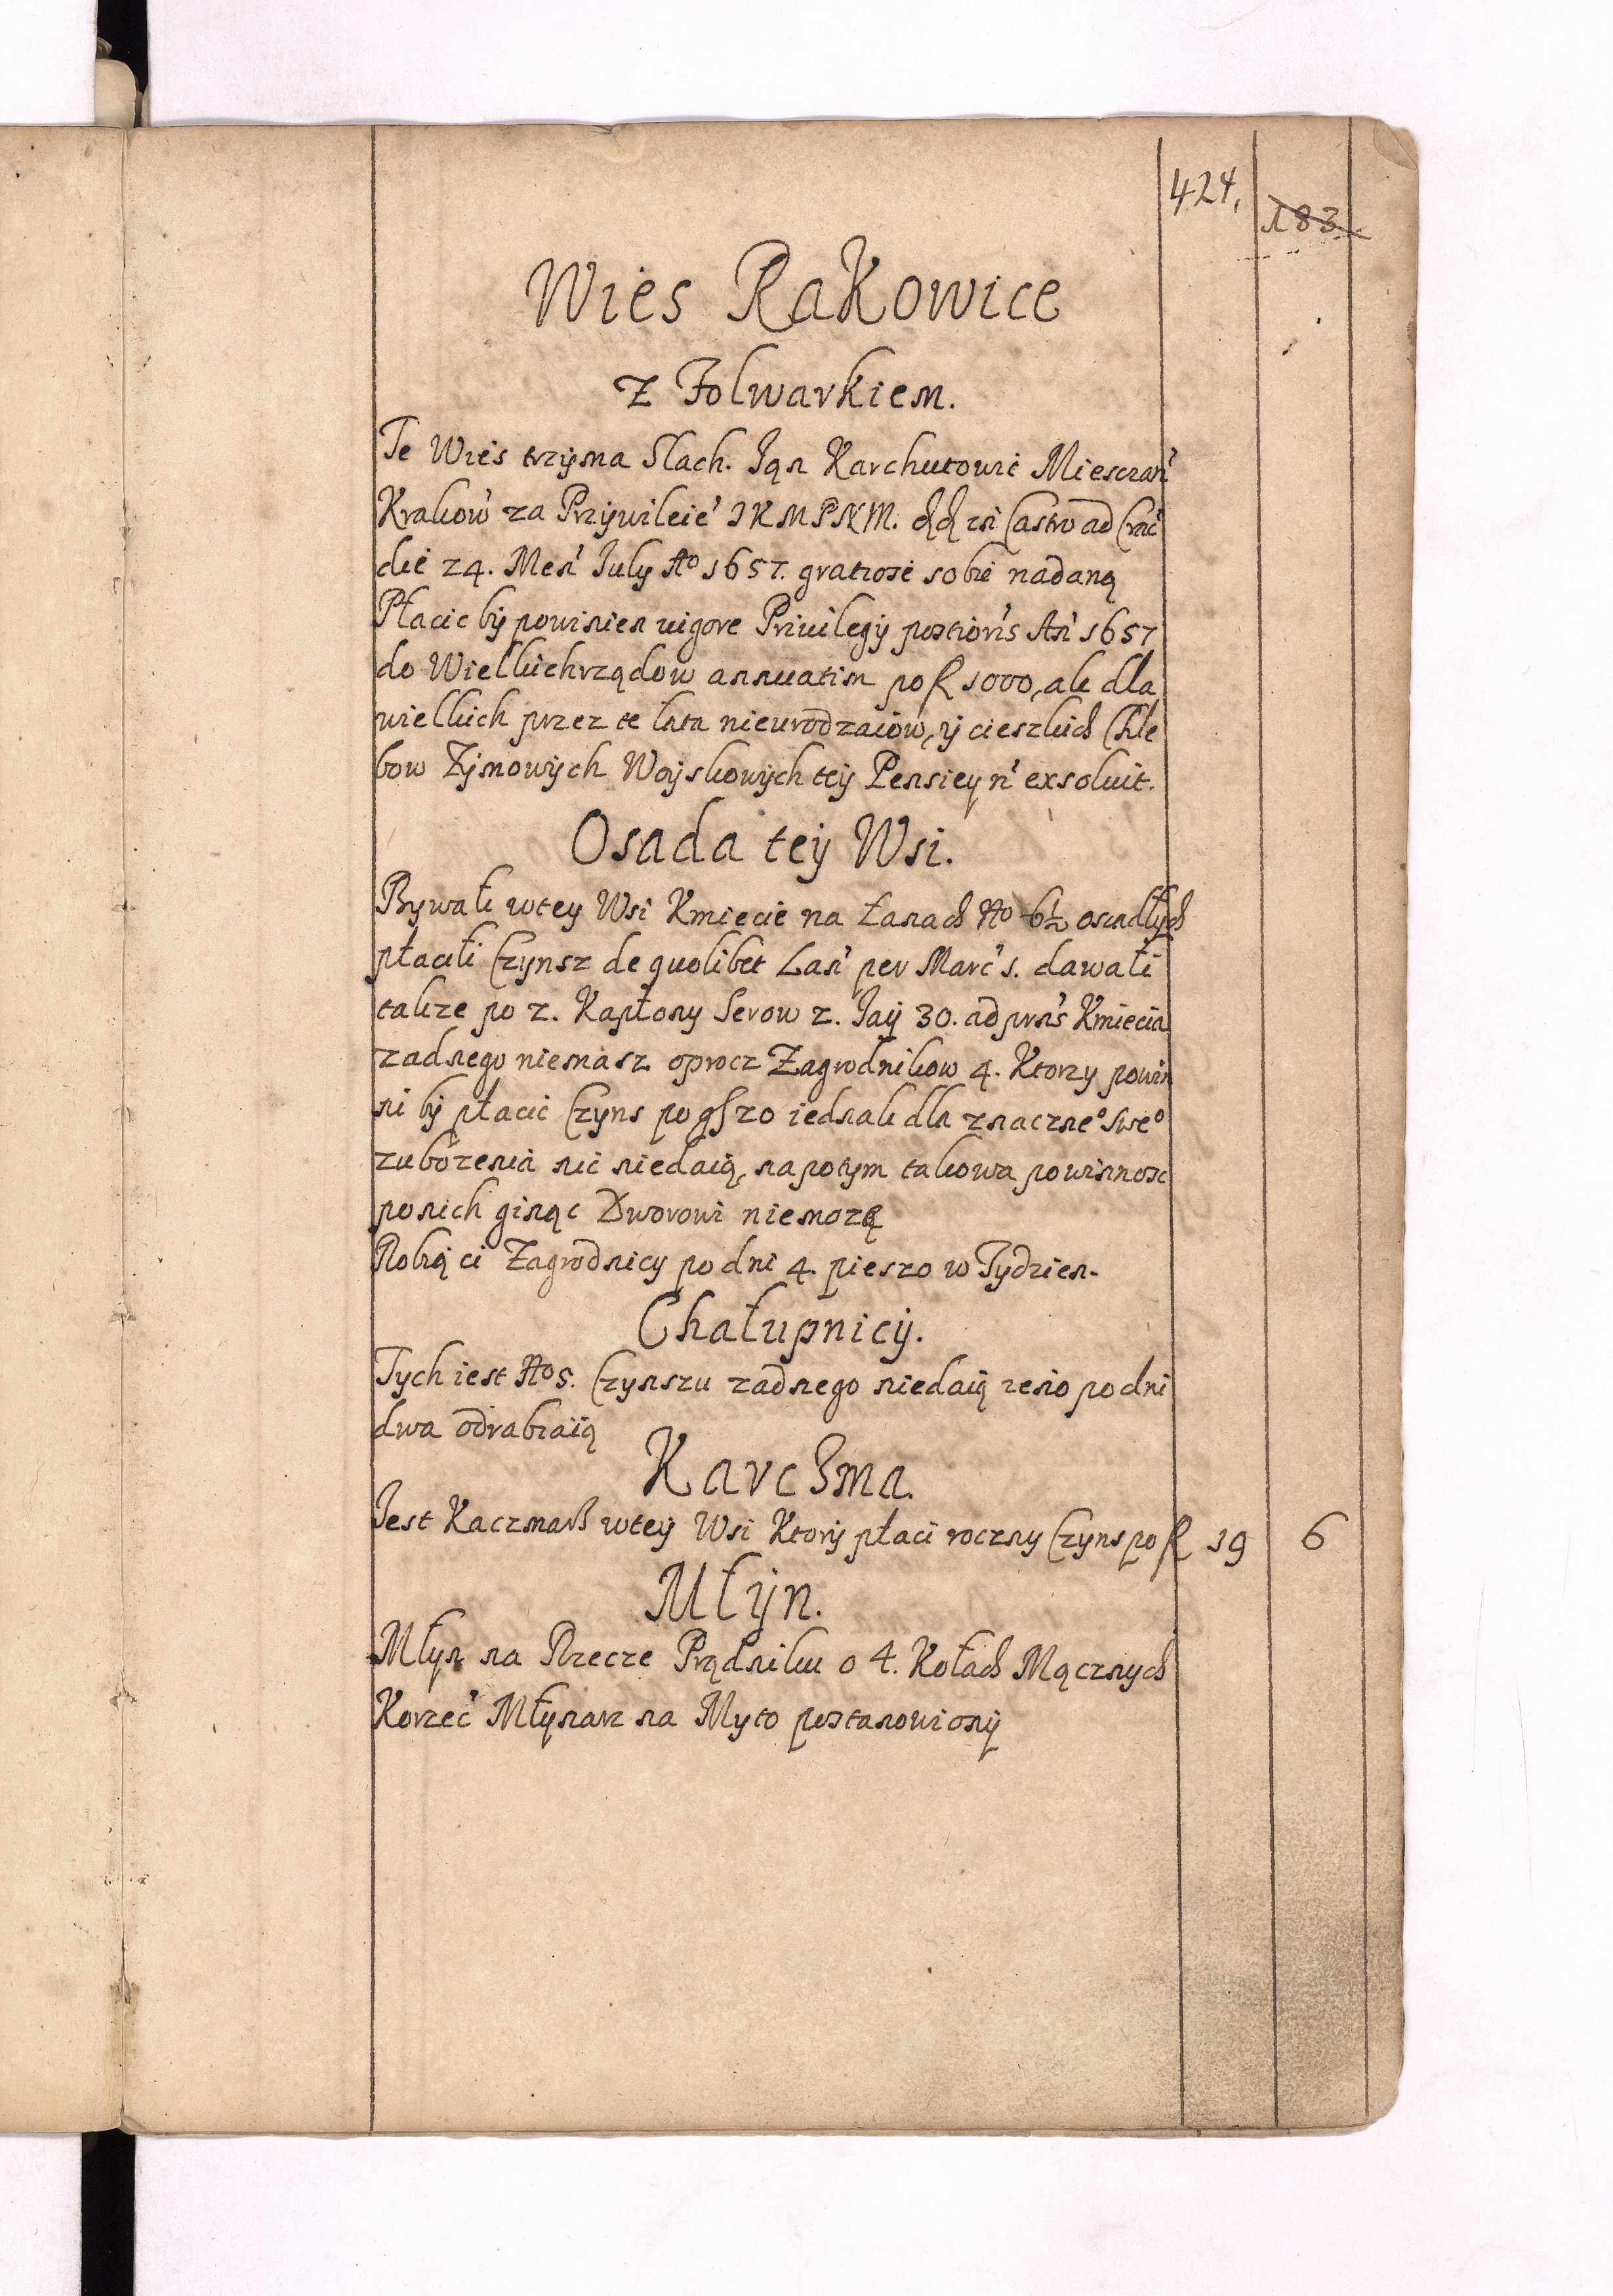 424.
183
Wies Rakowice
z Folwarkiem.
Te Wies trzyma Slach. Jąn Karchutowic Miesczan'
Krakow' za Przywileie' JKMPNM. dd in Castro ad Crac'
die 24. Men' July Ao 1657. gratiose sobie nadaną
Płacic by powinien vigore Privilegij postioris An' 1657
do Wielkichrządow annuatim po f 1000, ale dla
wielkich przez te lata nieurodzaiow, ij cieszkich Chle
bow Zymowych Woyskowych tey Pensiey n' exsoluit.
Osada tey Wsi.
Bywali wtey Wsi Kmiecie na Łanach No 6½ osiadłych
płacili Czynsz de quolibet Lan' per Marc' 1. dawali
takze po 2. Kapłony Serow 2. Jay 30. ad prns' Kmiecia
zadnego niemasz oprocz Zagrodnikow 4. Ktorzy powin
ni by płacic Czyns po gs 20 iednak dla znaczneo sweo
zubozenia nic niedaią, napotym takowa powinnosc
ponich ginąc Dworowi niemoze
Robią ci Zagrodnicy po dni 4. pieszo w Tydzien.
Chałupnicy.
Tych iest No 5. Czynszu zadnego niedaią ieno po dni
dwa odrabiaią
Karczma.
Jest Kaczmarz wtey Wsi Ktory płaci roczny Czyns po f 19 6
Młyn.
Młyn na Rzecze Prądniku o 4. Kołach Mącznych
Korzec' Młynarz na Myto postanowiony